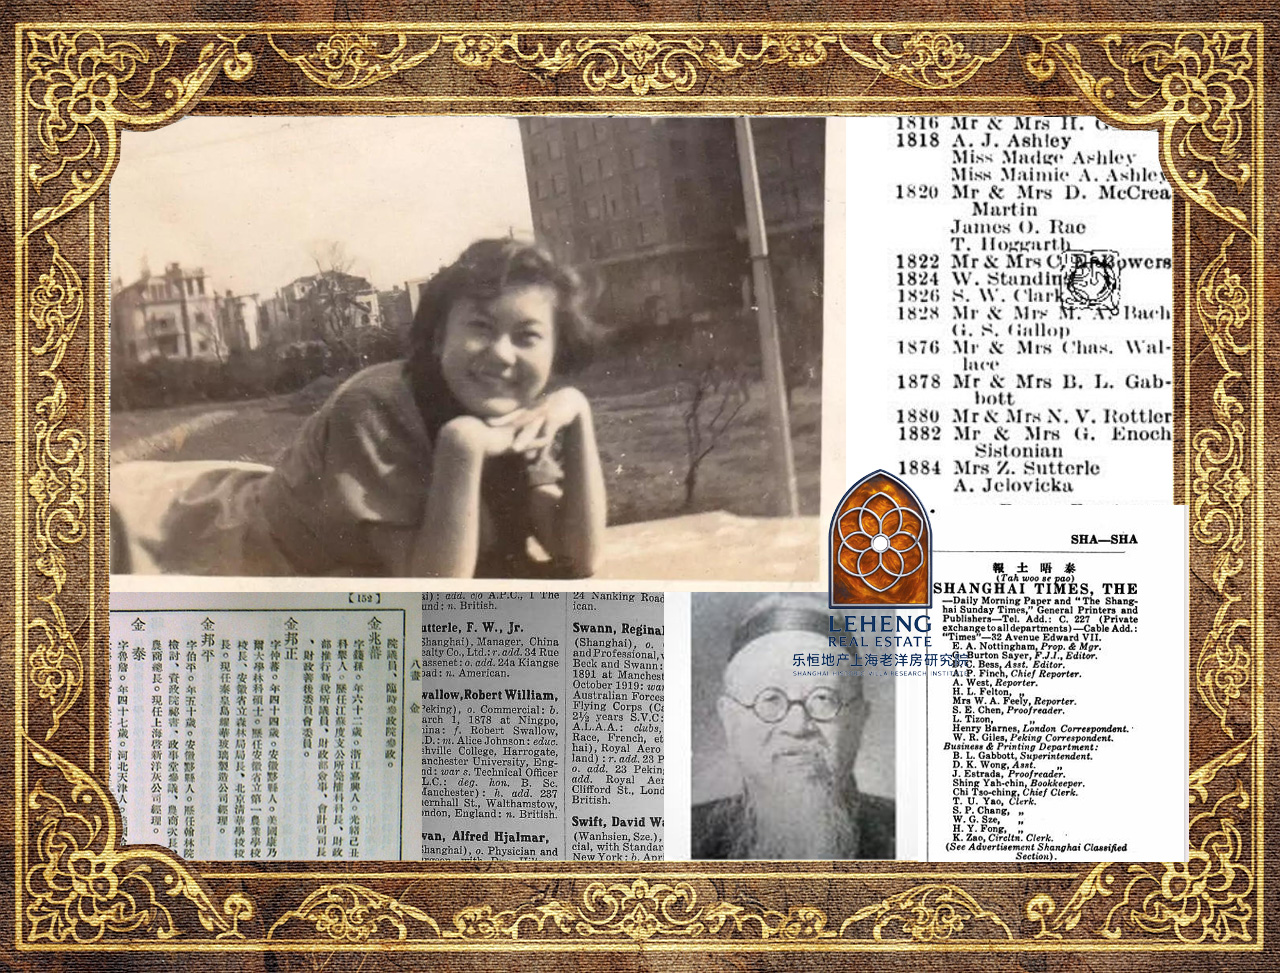 1816 Mr & Mrs H. G
1818 A. J. Ashley
Miss Madge Ashley
Miss Maimie A. Ashley
1820 Mr & Mrs D. McCrea
Martin
James O. Rae
T. Hoggarth
1822 Mr & Mrs C. Bowers
1824 W. Standin
1826 S. W. Clark
1828 Mr & Mrs M. A. Bach
G. S. Gallop
1876 Mr & Mrs Chas. Wal-
lace
1878 Mr & Mrs B. L. Gab-
bott
1880 Mr & Mrs N. V. Rottler
1882 Mr & Mrs G. Enoch
Sistonian
1884 Mrs Z. Sutterle
A. Jelovicka
SHA—SHA
報士晤泰
(Tah woo se pao)
SHANGHAI TIMES, THE
—Daily Morning Paper and "The Shang-
hai Sunday Times," General Printers and
Publishers—Tel. Add.: C. 227 (Private
exchange to all departments)—Cable Add.:
"Times"—32 Avenue Edward VII.
E. A. Nottingham, Prop. & Mgr.
G. Burton Sayer, F.J.I., Editor.
C. Bess, Asst. Editor.
P. Finch, Chief Reporter.
A. West, Reporter.
H. L. Felton, „
Mrs W. A. Feely, Reporter.
S. E. Chen, Proofreader.
L. Tizon, „
Henry Barnes, London Correspondent.
W. R. Giles, Peking Correspondent.
Business & Printing Department:
B. L. Gabbott, Superintendent.
D. K. Wong, Asst. „
J. Estrada, Proofreader.
Shing Yah-chin, Bookkeeper.
Chi Tso-ching, Chief Clerk.
T. U. Yao, Clerk.
S. P. Chang, „
W. G. Sze, „
H. Y. Fong, „
K. Zao, Circltn. Clerk.
(See Advertisement Shanghai Classified
Section).
LEHENG
REAL ESTATE
乐恒地产上海老洋房研究院
SHANGHAI HISTORY VILLA RESEARCH INSTITUTE
【152】
八畫 金
院議員、臨時參政院參政。
金兆蕃
字籛孫。年六十二歲。浙江嘉興人。光緒己丑
科舉人。歷任江蘇度支公所榮櫞科科長、財政
部僉行新稅所議員、財政部會事、會計司司長
、財政善後委員會委員。
金邦正
字仲蕃。年四十四歲。安徽黟縣人。美國康乃
爾大學林科碩士。歷任安徽省立第一農業學校
校長、安徽省立森林局局長、北京清華學校校
長。現任秦皇島耀華玻璃製造公司經理。
金邦平
字伯平。年五十歲。安徽黟縣人。歷任翰林院
檢討、資政院祕書、政事堂參議、農商次長
農商總長。現任上海啓新洋灰公司經理。
金 泰
字魯瞻。年四十七歲。河北天津人。
al): add. c/o A.P.C., 1 The
und: n. British.
utterle, F. W., Jr.
Shanghai), Manager, China
ealty Co., Ltd.: r. add. 34 Rue
assenet: o. add. 24a Kiangse
oad: n. American.
wallow, Robert William,
Peking), o. Commercial: b.
arch 1, 1878 at Ningpo,
hina: f. Robert Swallow,
.D.: m. Alice Johnson: educ.
shville College, Harrogate,
anchester University, Eng-
nd: war s. Technical Officer
L.C.: deg. hon. B. Sc.
Manchester): h. add. 237
ernhall St., Walthamstow,
ondon, England: n. British.
wan, Alfred Hjalmar,
hanghai), o. Physician and
24 Nanking Road
ican.
Swann, Reginal
(Shanghai), o.
and Professional,
Beck and Swann:
1891 at Manchest
October 1919: war
Australian Forces
Flying Corps (Ca
2½ years S.V.C:
A.L.A.A.: clubs,
Race, French, et
hai), Royal Aero
land): r. add. 23 P
o. add. 23 Peking
add. Royal Aer
Clifford St., Lond
British.
Swift, David Wa
(Wanhsien, Sze.),
cial, with Standar
New York: b. Apri